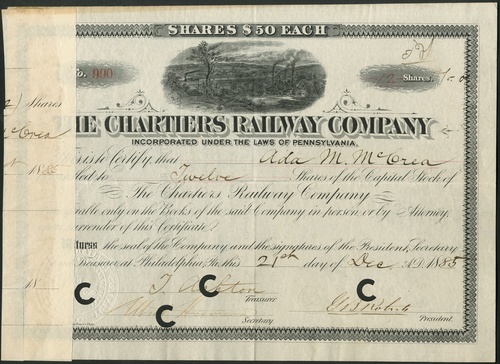 SHARES $50 EACH
No. 990
Shares.
Shares
McCrea
HE CHARTIERS RAILWAY COMPANY
INCORPORATED UNDER THE LAWS OF PENNSYLVANIA.
is to Certify, that Ada M. McCrea
led to Twelve Shares of the Capital Stock of
The Chartiers Railway Company
able only on the Books of the said Company in person or by Attorney,
urrender of this Certificate.
1885
the seal of the Company and the signatures of the President, Secretary
Treasurer, at Philadelphia, Pa. this 21st day of Dec A.D. 1885
18
C C C
Treasurer
Secretary
President.